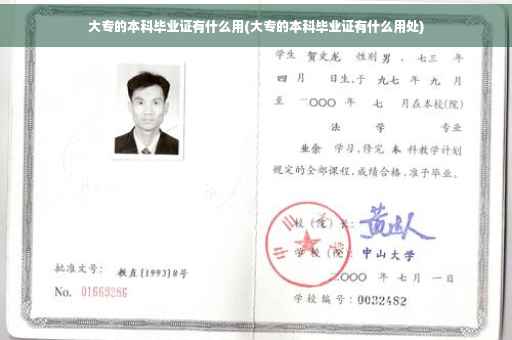 大专的本科毕业证有什么用(大专的本科毕业证有什么用处)
学生 贺文龙 性别 男 、七三 年
四 月 日生,于 九七 年 九 月
至 二〇〇〇 年 七 月在本校(院)
法 学 专业
业余 学习,修完 本 科教学计划
规定的全部课程,成绩合格,准予毕业。
校(院)长:
学校(院): 中山大学
二〇〇〇 年 七 月 一 日
学校编号: 0032482
批准文号: 教直[1993]8号
No. 01669286